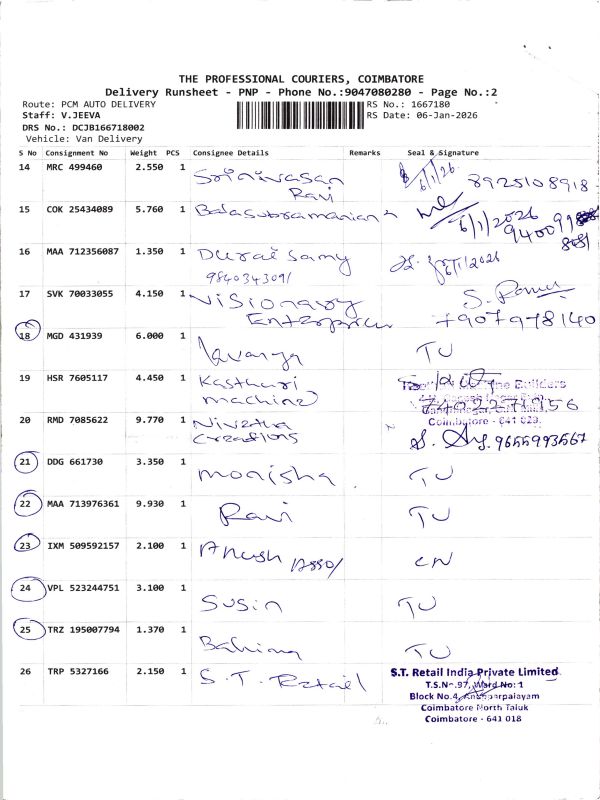 THE PROFESSIONAL COURIERS, COIMBATORE
Delivery Runsheet - PNP - Phone No.:9047080280 - Page No.:2
Route: PCM AUTO DELIVERY
RS No.: 1667180
Staff: V.JEEVA
RS Date: 06-Jan-2026
DRS No.: DCJB166718002
Vehicle: Van Delivery
S No Consignment No Weight PCS Consignee Details Remarks Seal & Signature
14 MRC 499460 2.550 1 Srinivasan Ravi 6/1/26 8925108918
15 COK 25434089 5.760 1 Balasubramanian 6/1/2026 94009
16 MAA 712356087 1.350 1 Durai Samy 6/1/2026
9840343091
17 SVK 70033055 4.150 1 Visionary
Enterprises 7907978140
18 MGD 431939 6.000 1 Lavanya TU
19 HSR 7605117 4.450 1 Kasthuri
machine Builders
Coimbatore - 641 029.
20 RMD 7085622 9.770 1 Nivetha
Creations 9655993567
21 DDG 661730 3.350 1 monisha TU
22 MAA 713976361 9.930 1 Ravi TU
23 IXM 509592157 2.100 1 Anush Asso/ CN
24 VPL 523244751 3.100 1 Susin TU
25 TRZ 195007794 1.370 1 TU
26 TRP 5327166 2.150 1 S.T. Retail
S.T. Retail India Private Limited.
T.S.No.97, Ward No: 1
Block No.4,
Coimbatore North Taluk
Coimbatore - 641 018